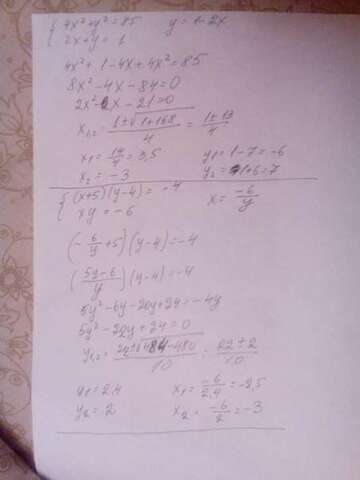 { 4x² + y² = 85    y = 1 - 2x
2x + y = 1
4x² + 1 - 4x + 4x² = 85
8x² - 4x - 84 = 0
2x² - x - 21 = 0
x₁,₂ = (1 ± √(1 + 168))/4 = (1 ± 13)/4
x₁ = 14/4 = 3,5    y₁ = 1 - 7 = -6
x₂ = -3    y₂ = 1 + 6 = 7
{ (x+5)(y-4) = -4    x = -6/y
xy = -6
(-6/y + 5)(y-4) = -4
((5y-6)/y)(y-4) = -4
5y² - 6y - 20y + 24 = -4y
5y² - 22y + 24 = 0
y₁,₂ = (22 ± √(484 - 480))/10 = (22 ± 2)/10
y₁ = 2,4    x₁ = -6/2,4 = -2,5
y₂ = 2    x₂ = -6/2 = -3